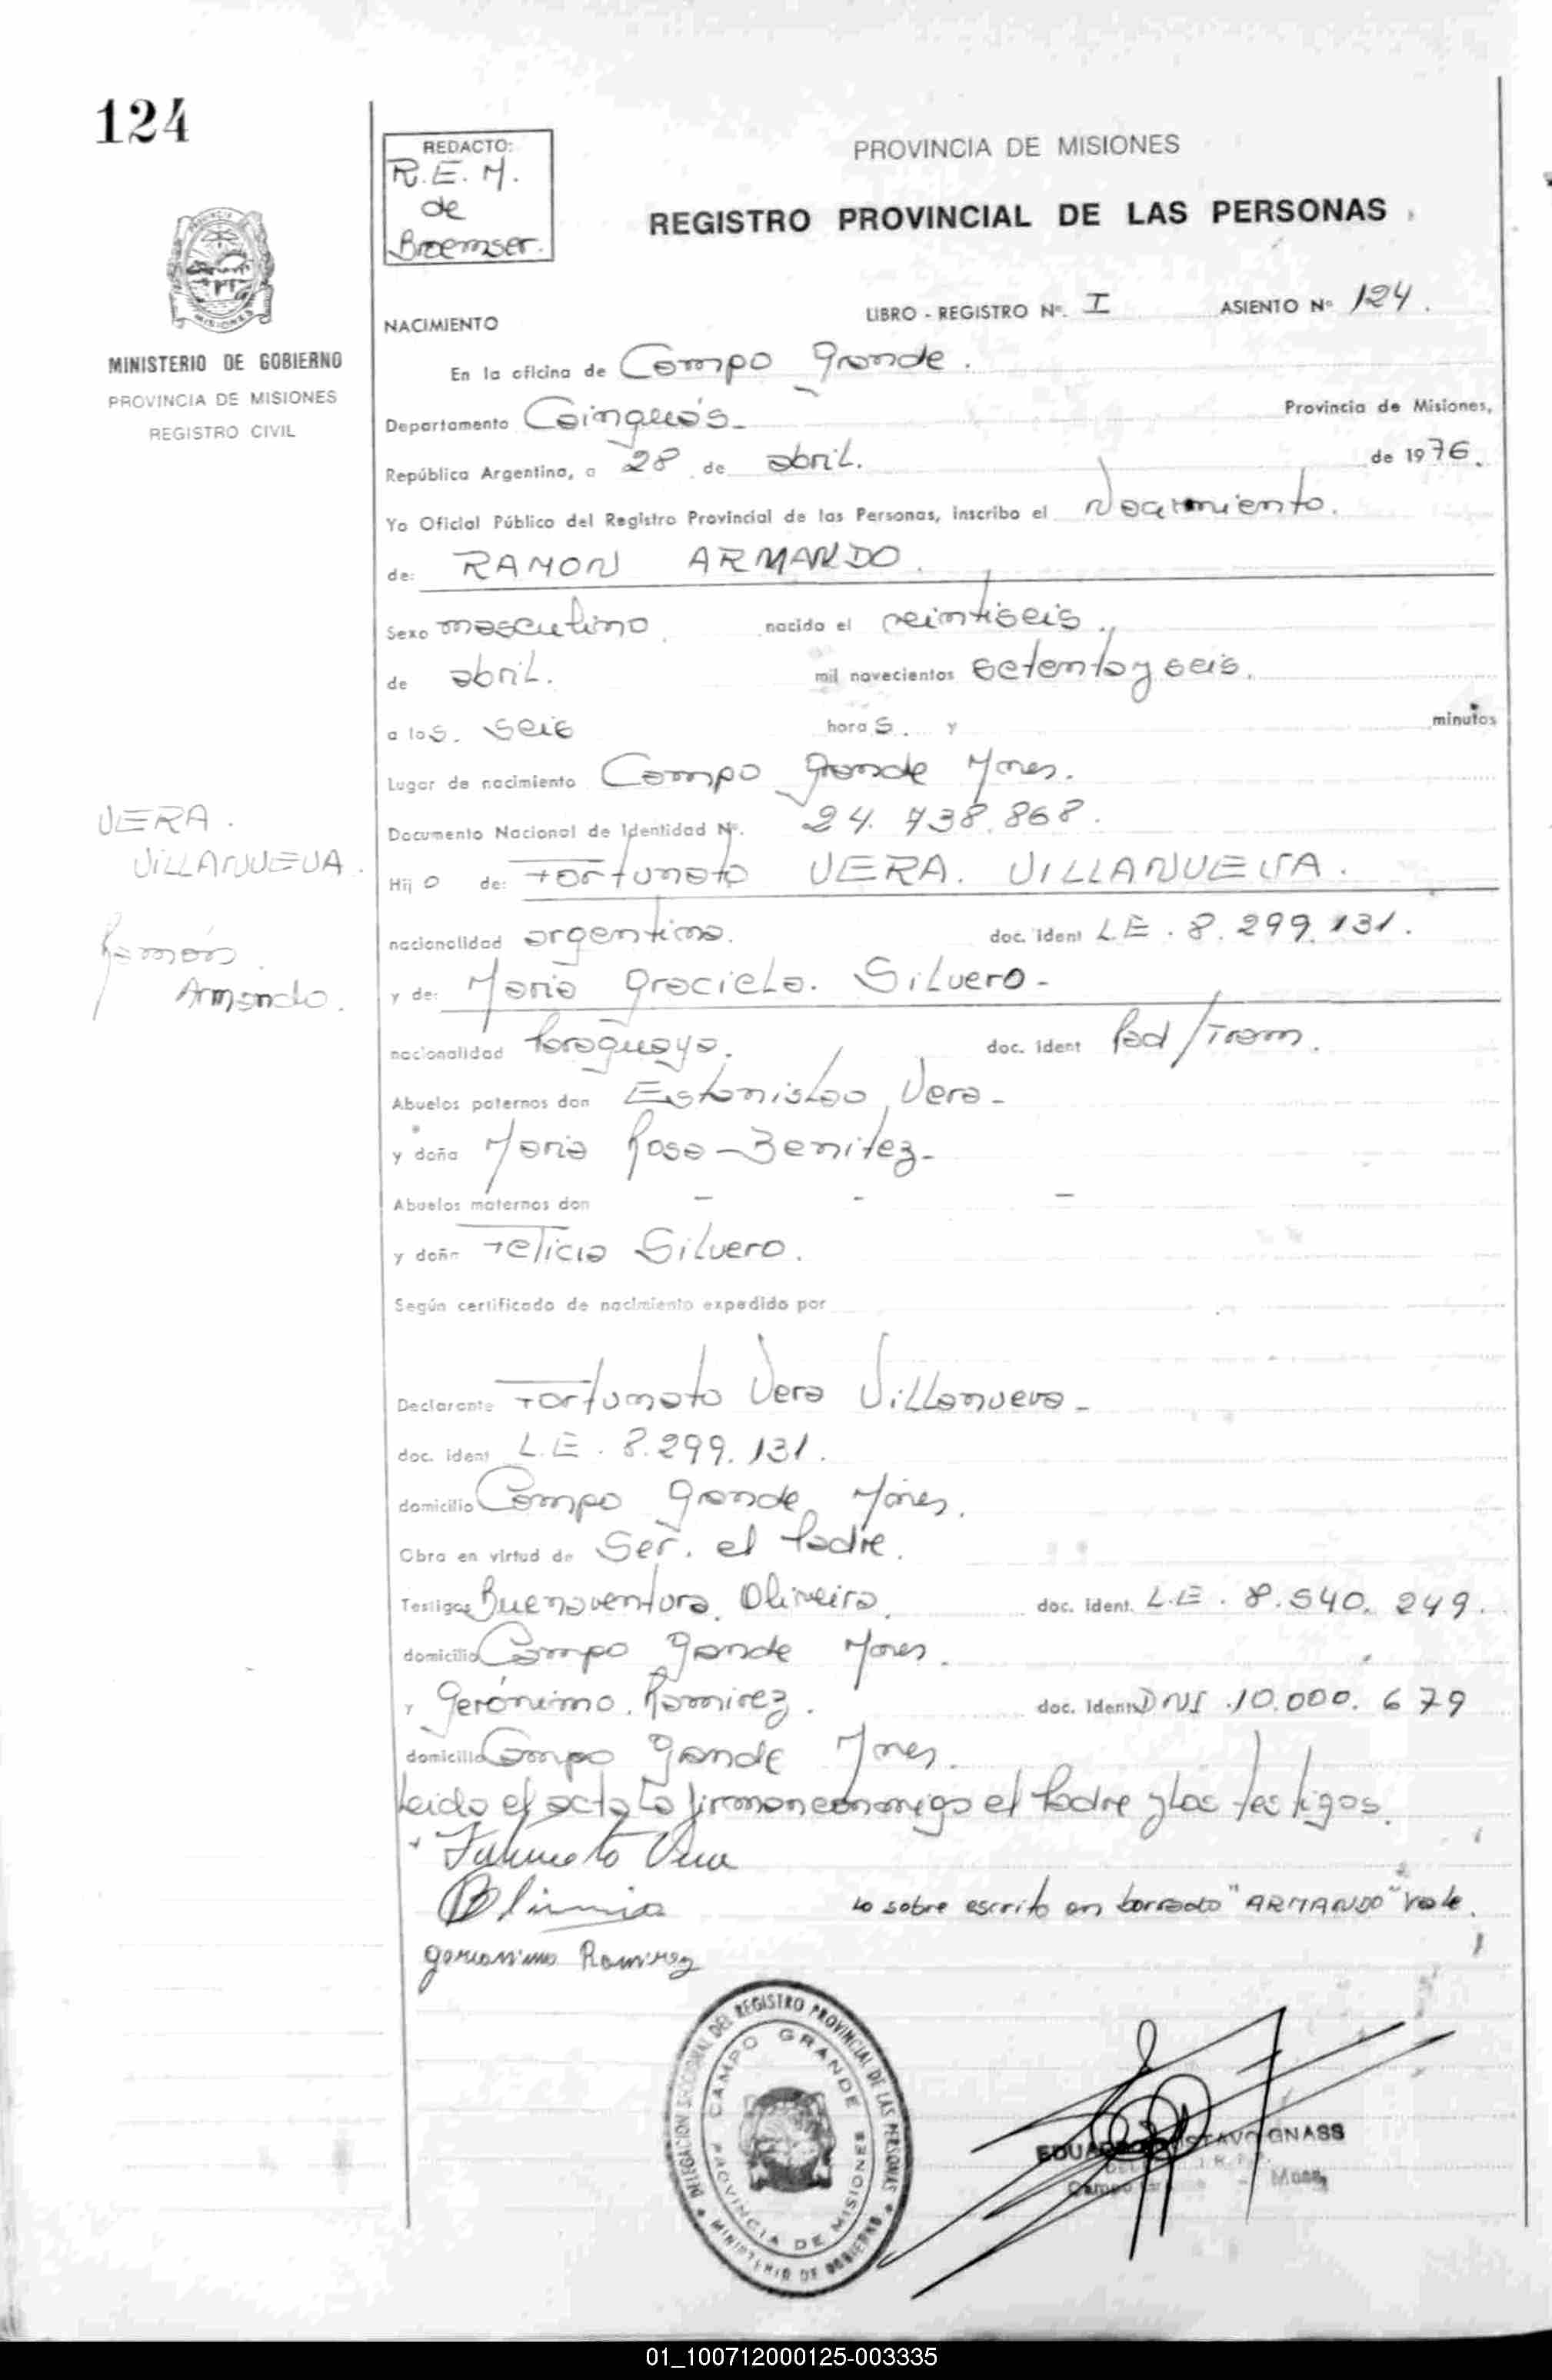 124
REDACTO:
R.E.M.
de
Broemser.
PROVINCIA DE MISIONES
REGISTRO PROVINCIAL DE LAS PERSONAS
MINISTERIO DE GOBIERNO
PROVINCIA DE MISIONES
REGISTRO CIVIL
LIBRO - REGISTRO Nº. I ASIENTO Nº 124.
NACIMIENTO
En la oficina de Campo Grande.
Departamento Cainguás- Provincia de Misiones,
República Argentina, a 28 de abril. de 1976.
Yo Oficial Público del Registro Provincial de las Personas, inscribo el Nacimiento.
de: RAMON ARMANDO.
Sexo masculino. nacido el veintiseis.
de abril. mil novecientos setenta y seis.
a las. seis horas. y minutos
Lugar de nacimiento Campo Grande Mnes.
Documento Nacional de Identidad Nº. 24.738.868.
VERA.
VILLANUEVA.
Ramón
Armando.
Hijo de: Fortunato VERA. VILLANUEVA.
nacionalidad argentina. doc. ident L.E. 8.299.131.
y de: Maria Graciela. Silvero-
nacionalidad Paraguaya. doc. ident Rad/Tram.
Abuelos paternos don Estanislao Vera-
y doña Maria Rosa-Benitez-
Abuelos maternos don - - -
y doña Felicia Silvero.
Según certificado de nacimiento expedido por
Declarante Fortunato Vera Villanueva-
doc. ident L.E. 8.299.131.
domicilio Campo Grande Mnes.
Obra en virtud de Ser. el Padre.
Testigos Buenaventura. Oliveira. doc. ident. L.E. 8.540.249.
domicilio Campo Grande Mnes.
y Gerónimo. Ramirez. doc. ident DNI .10.000.679
domicilio Campo Grande Mnes.
Leido el acta la firman conmigo el Padre y los testigos.
Fortunato Vera
Lo sobre escrito en borrado "ARMANDO" Vale.
Geronimo Ramirez
DELEGACION SECCIONAL DEL REGISTRO PROVINCIAL DE LAS PERSONAS
CAMPO GRANDE
PROVINCIA DE MISIONES
MINISTERIO DE GOBIERNO
EDUARDO GUSTAVO GNASS
01_100712000125-003335